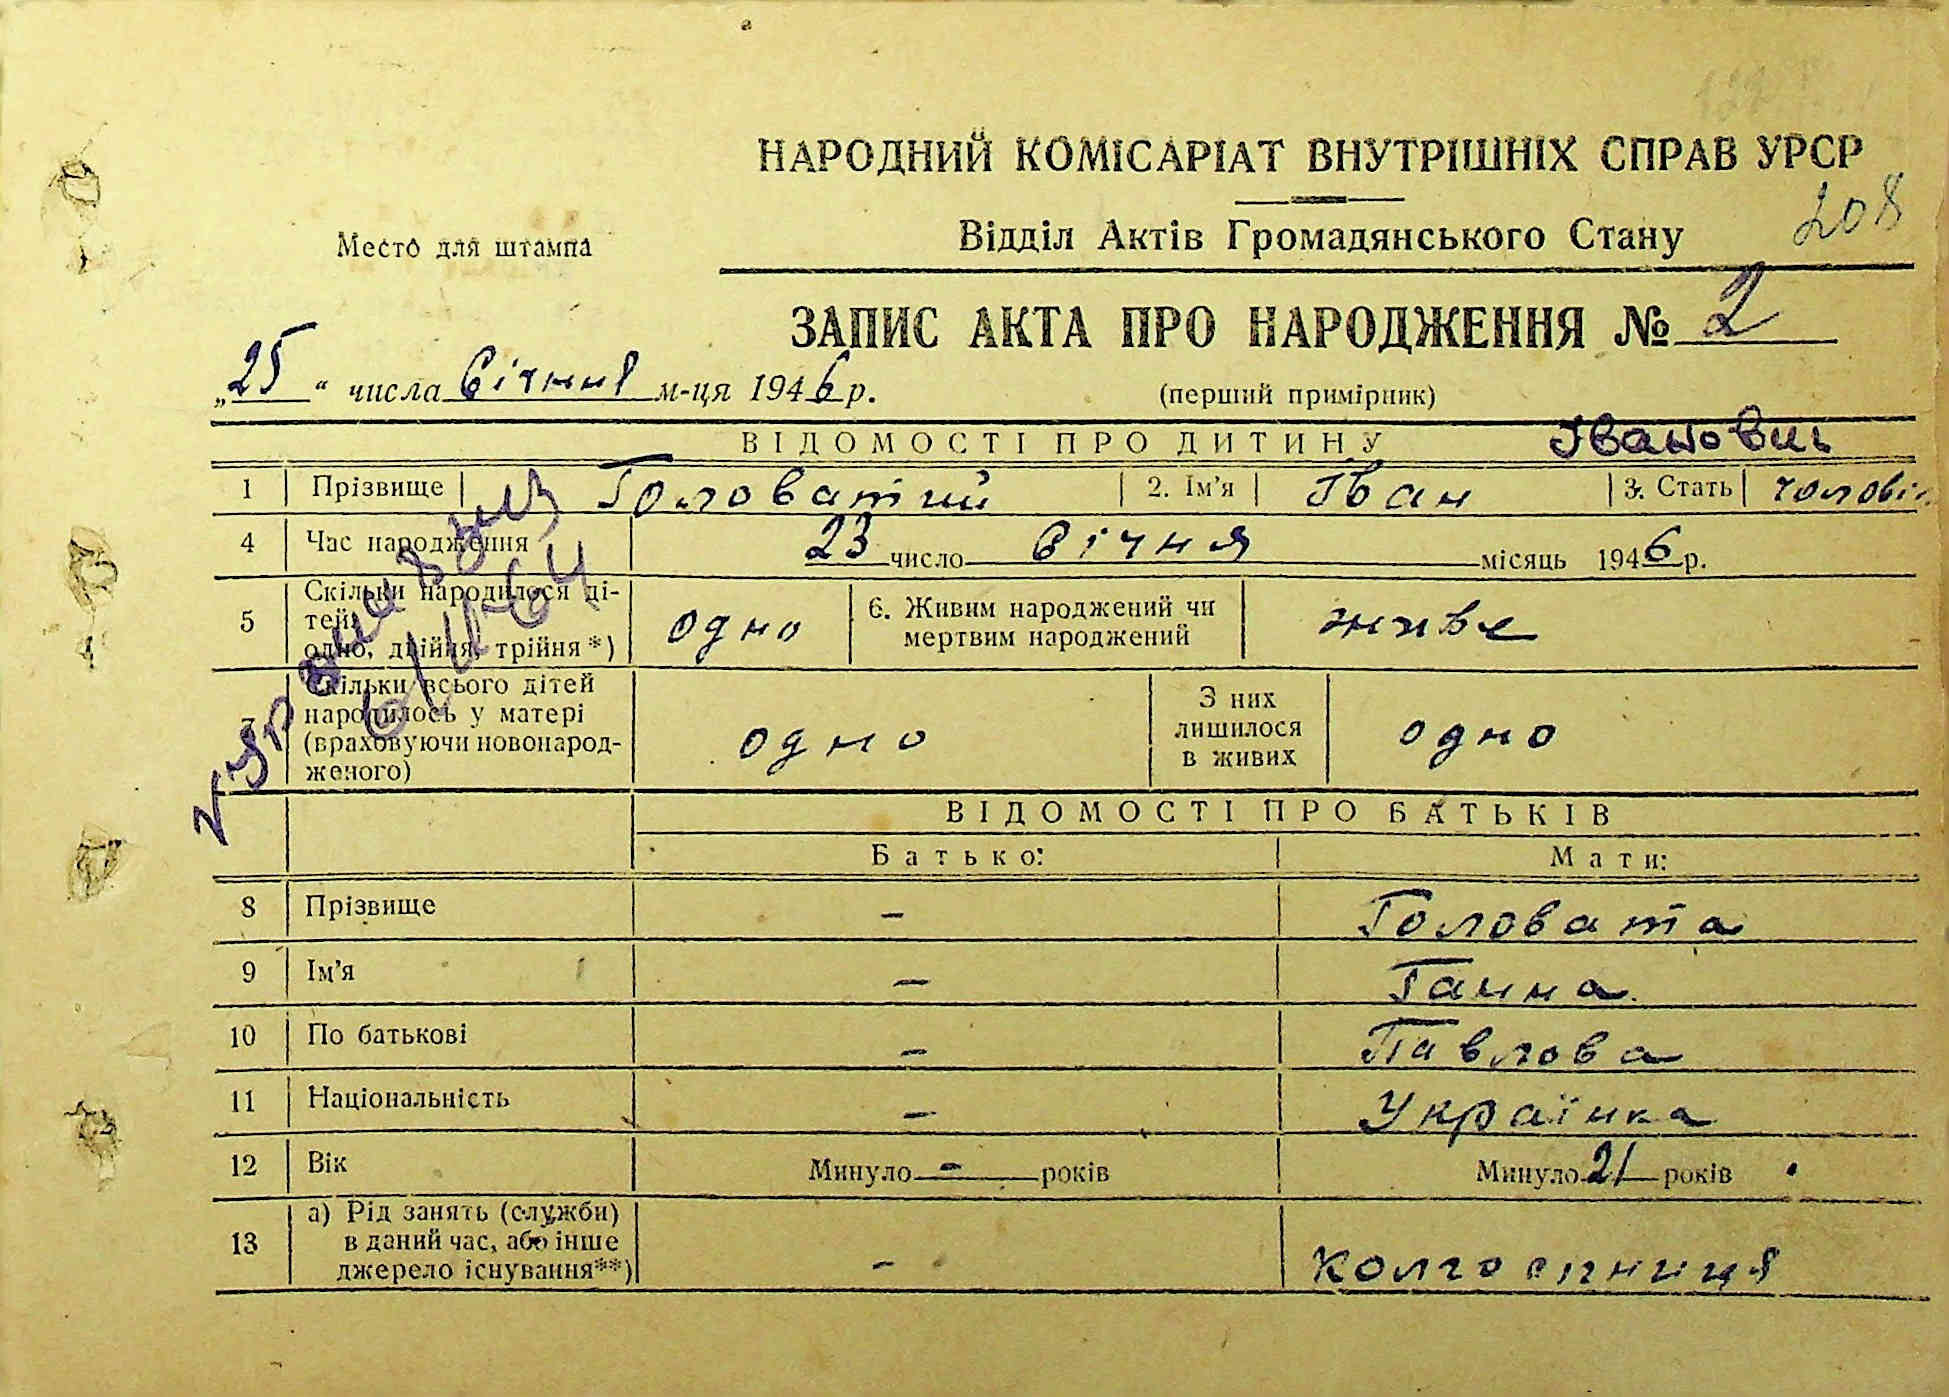 НАРОДНИЙ КОМІСАРІАТ ВНУТРІШНІХ СПРАВ УРСР
208
Место для штампа
Відділ Актів Громадянського Стану
ЗАПИС АКТА ПРО НАРОДЖЕННЯ № 2
„25“ числа Січня м-ця 1946 р.
(перший примірник)
ВІДОМОСТІ ПРО ДИТИНУ
Іванович
1 Прізвище Головатий 2. Ім'я Іван 3. Стать чолові
4 Час народження 23 число Січня місяць 1946 р.
5 Скільки народилося ді-
тей:
одно, двійня, трійня*)
одно
6. Живим народжений чи
мертвим народжений
живе
7 Скільки всього дітей
народилось у матері
(враховуючи новонарод-
женого)
одно
З них
лишилося
в живих
одно
6/II-64
ВІДОМОСТІ ПРО БАТЬКІВ
Батько: Мати:
8 Прізвище – Головата
9 Ім'я – Ганна
10 По батькові – Павлова
11 Національність – Українка
12 Вік Минуло - років Минуло 21 років
13 а) Рід занять (служби)
в даний час, або інше
джерело існування**)
– колгоспниця